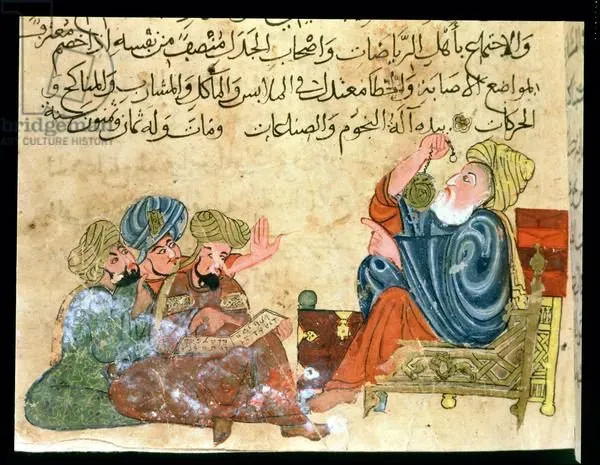 والاجتماع بأهل الرياضات واصحاب الجدل منصف من نفسه اذا خصم معترف
بمواضع الاصابة والخطا معتدل في الملابس والماكل والمشارب والمناكح و
الحركات بيده آلة النجوم والصناعات ومات وله ثمان وستون سنة
ART CULTURE HISTORY